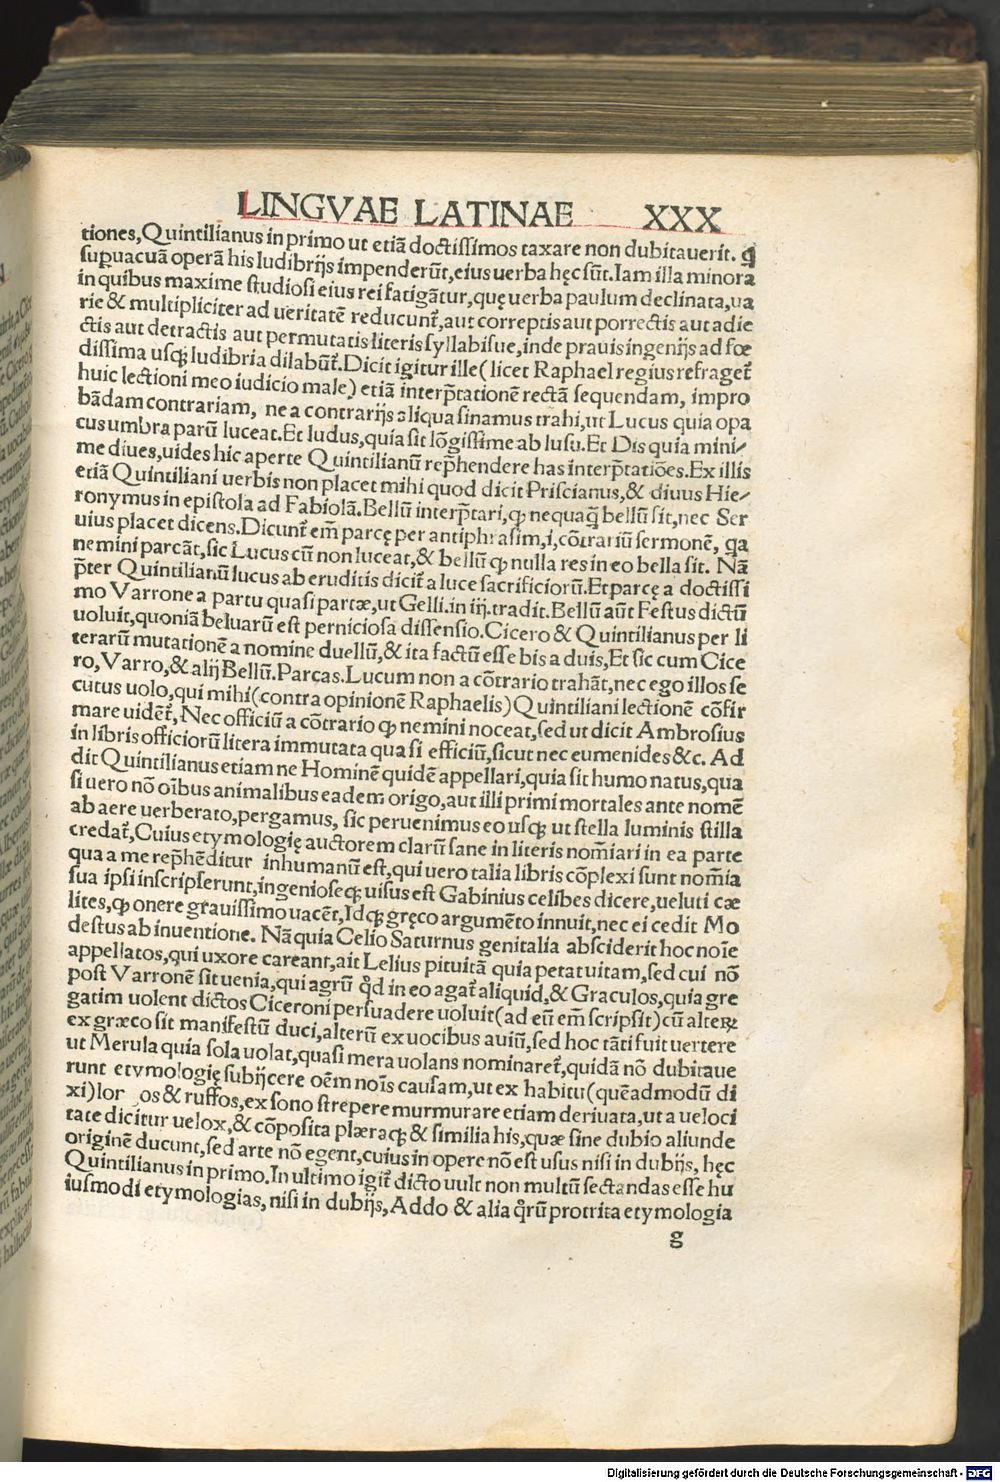 LINGVAE LATINAE XXX
tiones,Quintilianus in primo ut etiã doctiſſimos taxare non dubitauerit. ꝗ
ſuꝑuacuã operã his ludibrijs impenderũt,eius uerba hęc ſũt.Iam illa minora
in quibus maxime ſtudioſi eius rei fatigãtur,quę uerba paulum declinata,ua
rie & multipliciter ad ueritatẽ reducunt᷑,aut correptis aut porrectis aut adie
ctis aut detractis aut permutatis literis ſyllabiſue,inde prauis ingenijs ad fœ
diſſima uſqꝫ ludibria dilabũt᷑.Dicit igitur ille(licet Raphael regius refraget᷑
huic lectioni meo iudicio male) etiã interp̃tationẽ rectã ſequendam, impro
bãdam contrariam, ne a contrarijs aliqua ſinamus trahi,ut Lucus quia opa
cus umbra parũ luceat.Et ludus,quia ſit lõgiſſime ab luſu.Et Dis quia mini⸗
me diues,uides hic aperte Quintilianũ rep̃hendere has interp̃tatiões.Ex illis
etiã Quintiliani uerbis non placet mihi quod dicit Priſcianus,& diuus Hie⸗
ronymus in epiſtola ad Fabiolã.Bellũ interp̃tari,ꝙ nequaq̃ bellũ ſit,nec Ser
uius placet dicens.Dicunt᷑ em̃ parcę per antiphraſim,i,cõtrariũ ſermonẽ, qa
nemini parcãt,ſic Lucus cũ non luceat,& bellũ ꝙ nulla res in eo bella ſit. Nã
p̃ter Quintilianũ lucus ab eruditis dicit᷑ a luce ſacrificiorũ.Et parcę a doctiſſi
mo Varrone a partu quaſi partæ,ut Gelli.in iij.tradit.Bellũ aũt Feſtus dictũ
uoluit,quoniã beluarũ eſt pernicioſa diſſenſio.Cicero & Quintilianus per li
terarũ mutationẽ a nomine duellũ,& ita factũ eſſe bis a duis,Et ſic cum Cice
ro,Varro,& alij Bellũ.Parcas.Lucum non a cõtrario trahãt,nec ego illos ſe
cutus uolo,qui mihi(contra opinionẽ Raphaelis)Quintiliani lectionẽ cõfir
mare uidẽt᷑,Nec officiũ a cõtrario ꝙ nemini noceat,ſed ut dicit Ambroſius
in libris officiorũ litera immutata quaſi efficiũ,ſicut nec eumenides &c. Ad
dit Quintilianus etiam ne Hominẽ quidẽ appellari,quia ſit humo natus,qua
ſi uero nõ oibus animalibus eadem origo,aut illi primi mortales ante nomẽ
ab aere uerberato,pergamus, ſic peruenimus eo uſqꝫ ut ſtella luminis ſtilla
credat᷑,Cuius etymologię auctorem clarũ ſane in literis nom̃iari in ea parte
qua a me rep̃hẽditur inhumanũ eſt,qui uero talia libris cõplexi ſunt nom̃ia
ſua ipſi inſcripſerunt,ingenioſeqꝫ uiſus eſt Gabinius celibes dicere,ueluti cæ
lites,ꝙ onere grauiſſimo uacẽt,Idqꝫ gręco argumẽto innuit,nec ei cedit Mo
deſtus ab inuentione. Nã quia Celio Saturnus genitalia abſciderit hoc noĩe
appellatos,qui uxore careant,ait Lelius pituitã quia petat uitam,ſed cui nõ
poſt Varronẽ ſit uenia,qui agrũ ꝙd in eo agat᷑ aliquid,& Graculos,quia gre
gatim uolent dictos Ciceroni perſuadere uoluit(ad eũ em̃ ſcripſit)cũ alteꝝ
ex græco ſit manifeſtũ duci,alterũ ex uocibus auiũ,ſed hoc tãti fuit uertere
ut Merula quia ſola uolat,quaſi mera uolans nominaret᷑,quidã nõ dubitaue
runt etymologię ſubijcere oẽm noĩs cauſam,ut ex habitu(quẽadmodũ di
xi)lor os & ruffos,ex ſono ſtrepere murmurare etiam deriuata,ut a ueloci
tate dicitur uelox,& cõpoſita plæraqꝫ & ſimilia his,quæ ſine dubio aliunde
originẽ ducunt,ſed arte nõ egent,cuius in opere nõ eſt uſus niſi in dubijs, hęc
Quintilianus in primo.In ultimo igit᷑ dicto uult non multũ ſectandas eſſe hu
iuſmodi etymologias, niſi in dubijs,Addo & alia q̃rũ protrita etymologia
g
Digitalisierung gefördert durch die Deutsche Forschungsgemeinschaft - DFG